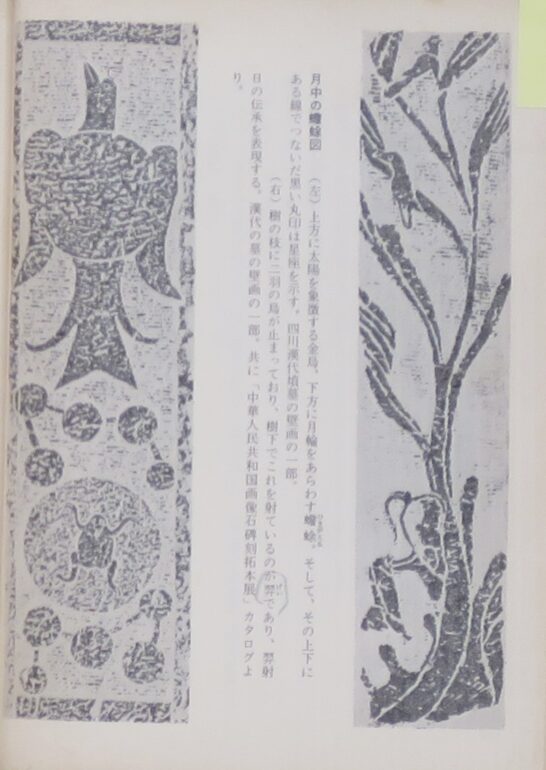 月中の蟾蜍図 (左)上方に太陽を象徴する金烏、下方に月輪をあらわす蟾蜍。そして、その上下に
ある線でつないだ黒い丸印は星座を示す。四川漢代墳墓の壁画の一部。
(右)樹の枝に二羽の烏が止まっており、樹下でこれを射ているのが羿であり、羿射
日の伝承を表現する。漢代の墓の壁画の一部。共に「中華人民共和国画像石碑刻拓本展」カタログよ
り。